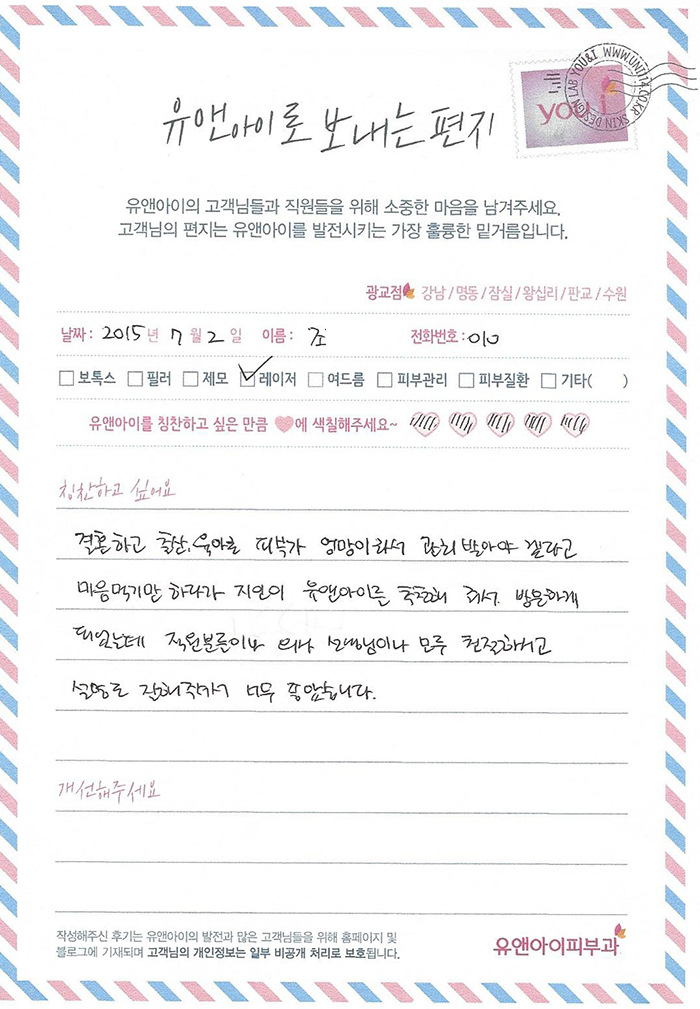 유앤아이로 보내는 편지
you i
SKIN DESIGN LAB YOU&I WWW.UNI114.CO.KR
유앤아이의 고객님들과 직원들을 위해 소중한 마음을 남겨주세요.
고객님의 편지는 유앤아이를 발전시키는 가장 훌륭한 밑거름입니다.
광교점 강남 / 명동 / 잠실 / 왕십리 / 판교 / 수원
날짜 : 2015 년 7 월 2 일 이름 : 조 전화번호 : 010
보톡스 필러 제모 레이저 여드름 피부관리 피부질환 기타( )
유앤아이를 칭찬하고 싶은 만큼 에 색칠해주세요~
칭찬하고 싶어요
결혼하고 출산, 육아로 피부가 엉망이라서 관리 받아야 겠다고
마음먹기만 하다가 지인이 유앤아이를 추천해 줘서 방문하게
되었는데 직원분들이나 의사 선생님이나 모두 친절하시고
설명도 잘해주셔서 너무 좋았습니다.
개선해주세요
작성해주신 후기는 유앤아이의 발전과 많은 고객님들을 위해 홈페이지 및
블로그에 기재되며 고객님의 개인정보는 일부 비공개 처리로 보호됩니다.
유앤아이피부과